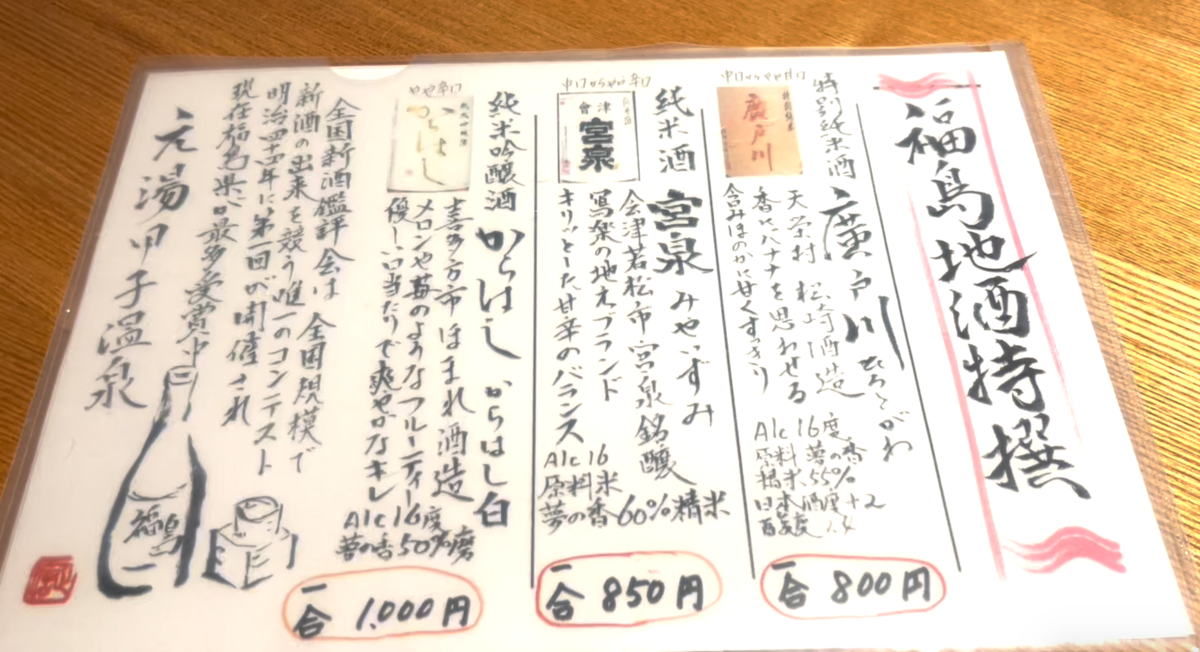 福島地酒特撰
中口からやや甘口
特別純米酒
廣戸川
廣戸川 ひろとがわ
天栄村 松崎酒造
香にバナナを思わせる
含みほのかに甘くすっきり
Alc 16度
原料米 夢の香
精米 55%
日本酒度 +2
酸度 1.4
一合 800円
中口からやや辛口
純米酒
會津
宮泉
宮泉 みやいずみ
会津若松市 宮泉銘醸
寫楽の地元ブランド
キリッとした甘辛のバランス
Alc 16
原料米
夢の香 60%精米
一合 850円
やや辛口
純米吟醸酒
からはし
からはし からはし白
喜多方市ほまれ酒造
メロンや苺のようなフルーティー
優しい口当たりで爽やかなキレ
Alc 16度
夢の香 50%磨
一合 1,000円
全国新酒鑑評会は 全国規模で
新酒の出来を競う唯一のコンテスト
明治四十四年に第一回が開催され
現在福島県が最多受賞中
元湯甲子温泉
福島